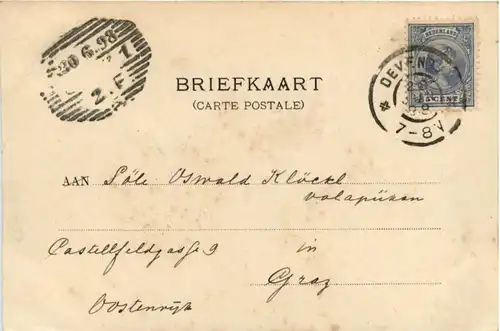 30.6.98
1
2. F
NEDERLAND
5 CENT
DEVENT
7-8V
BRIEFKAART
(CARTE POSTALE)
AAN Söle Oswald Klöckl
volapükan
Castellfeldgasse 9 in
Graz
Oostenrijk